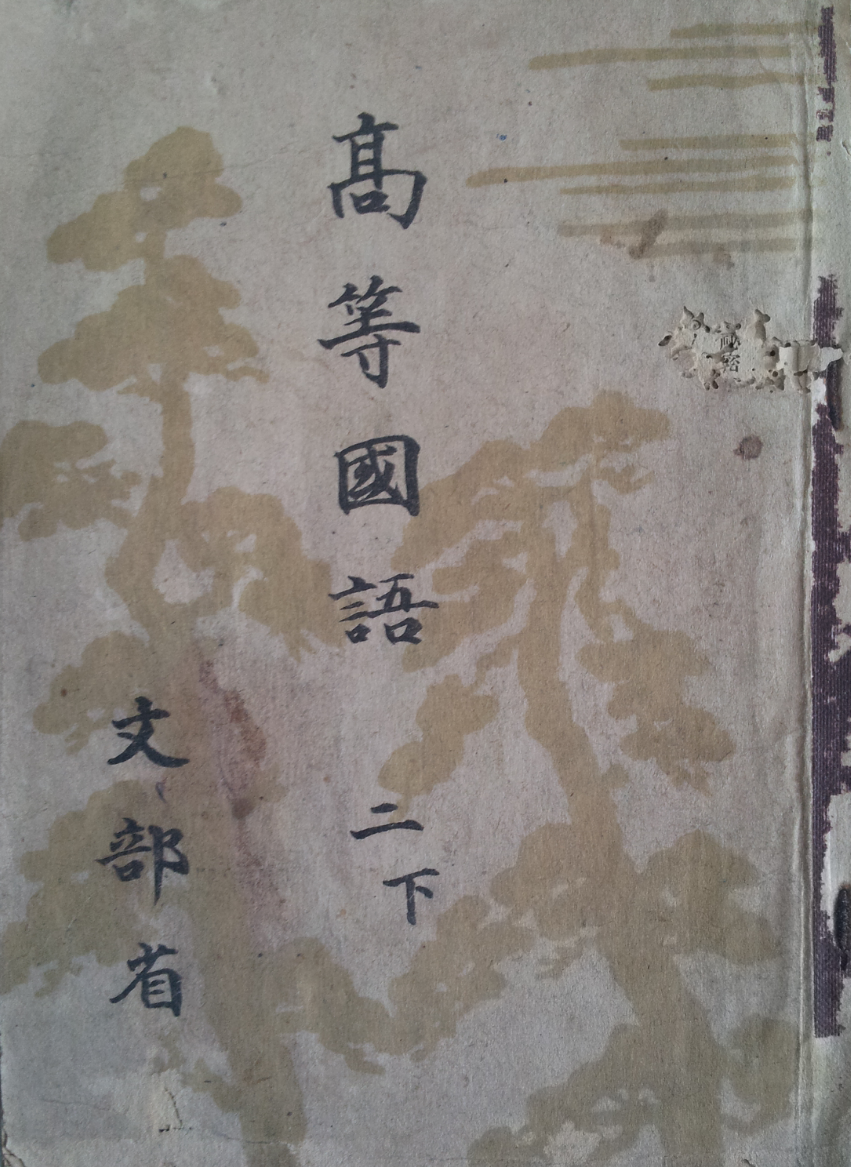 高等國語
二下
文部省